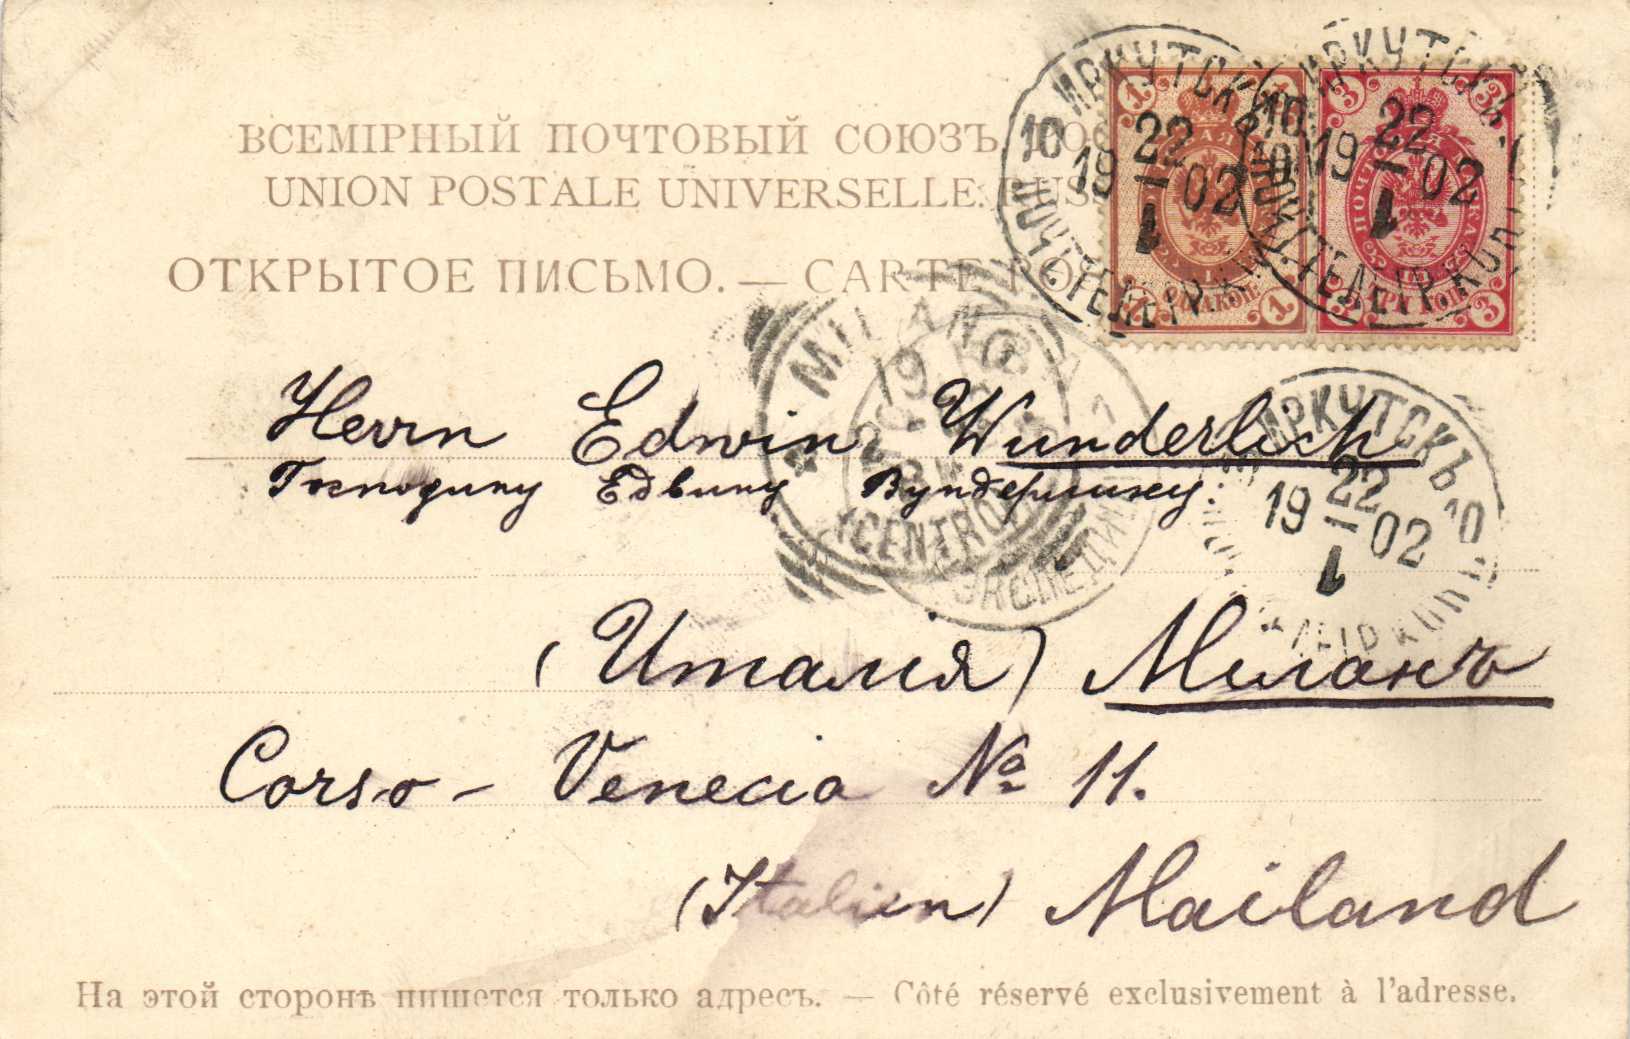 ВСЕМІРНЫЙ ПОЧТОВЫЙ СОЮЗЪ.
UNION POSTALE UNIVERSELLE.
ОТКРЫТОЕ ПИСЬМО. — CARTE
ИРКУТСК 10
22
19 — 02
1
ИРКУТСКЪ
22
19 — 02
1
MILANO
CENTRO
ИРКУТСКЪ 10
22
19 — 02
1
Herrn Edwin Wunderlich
Господину Едвину Вундерлиху.
(Италія) Міланъ
Corso - Venecia № 11.
(Italien) Mailand
На этой сторонѣ пишется только адресъ. — Côté réservé exclusivement à l'adresse.